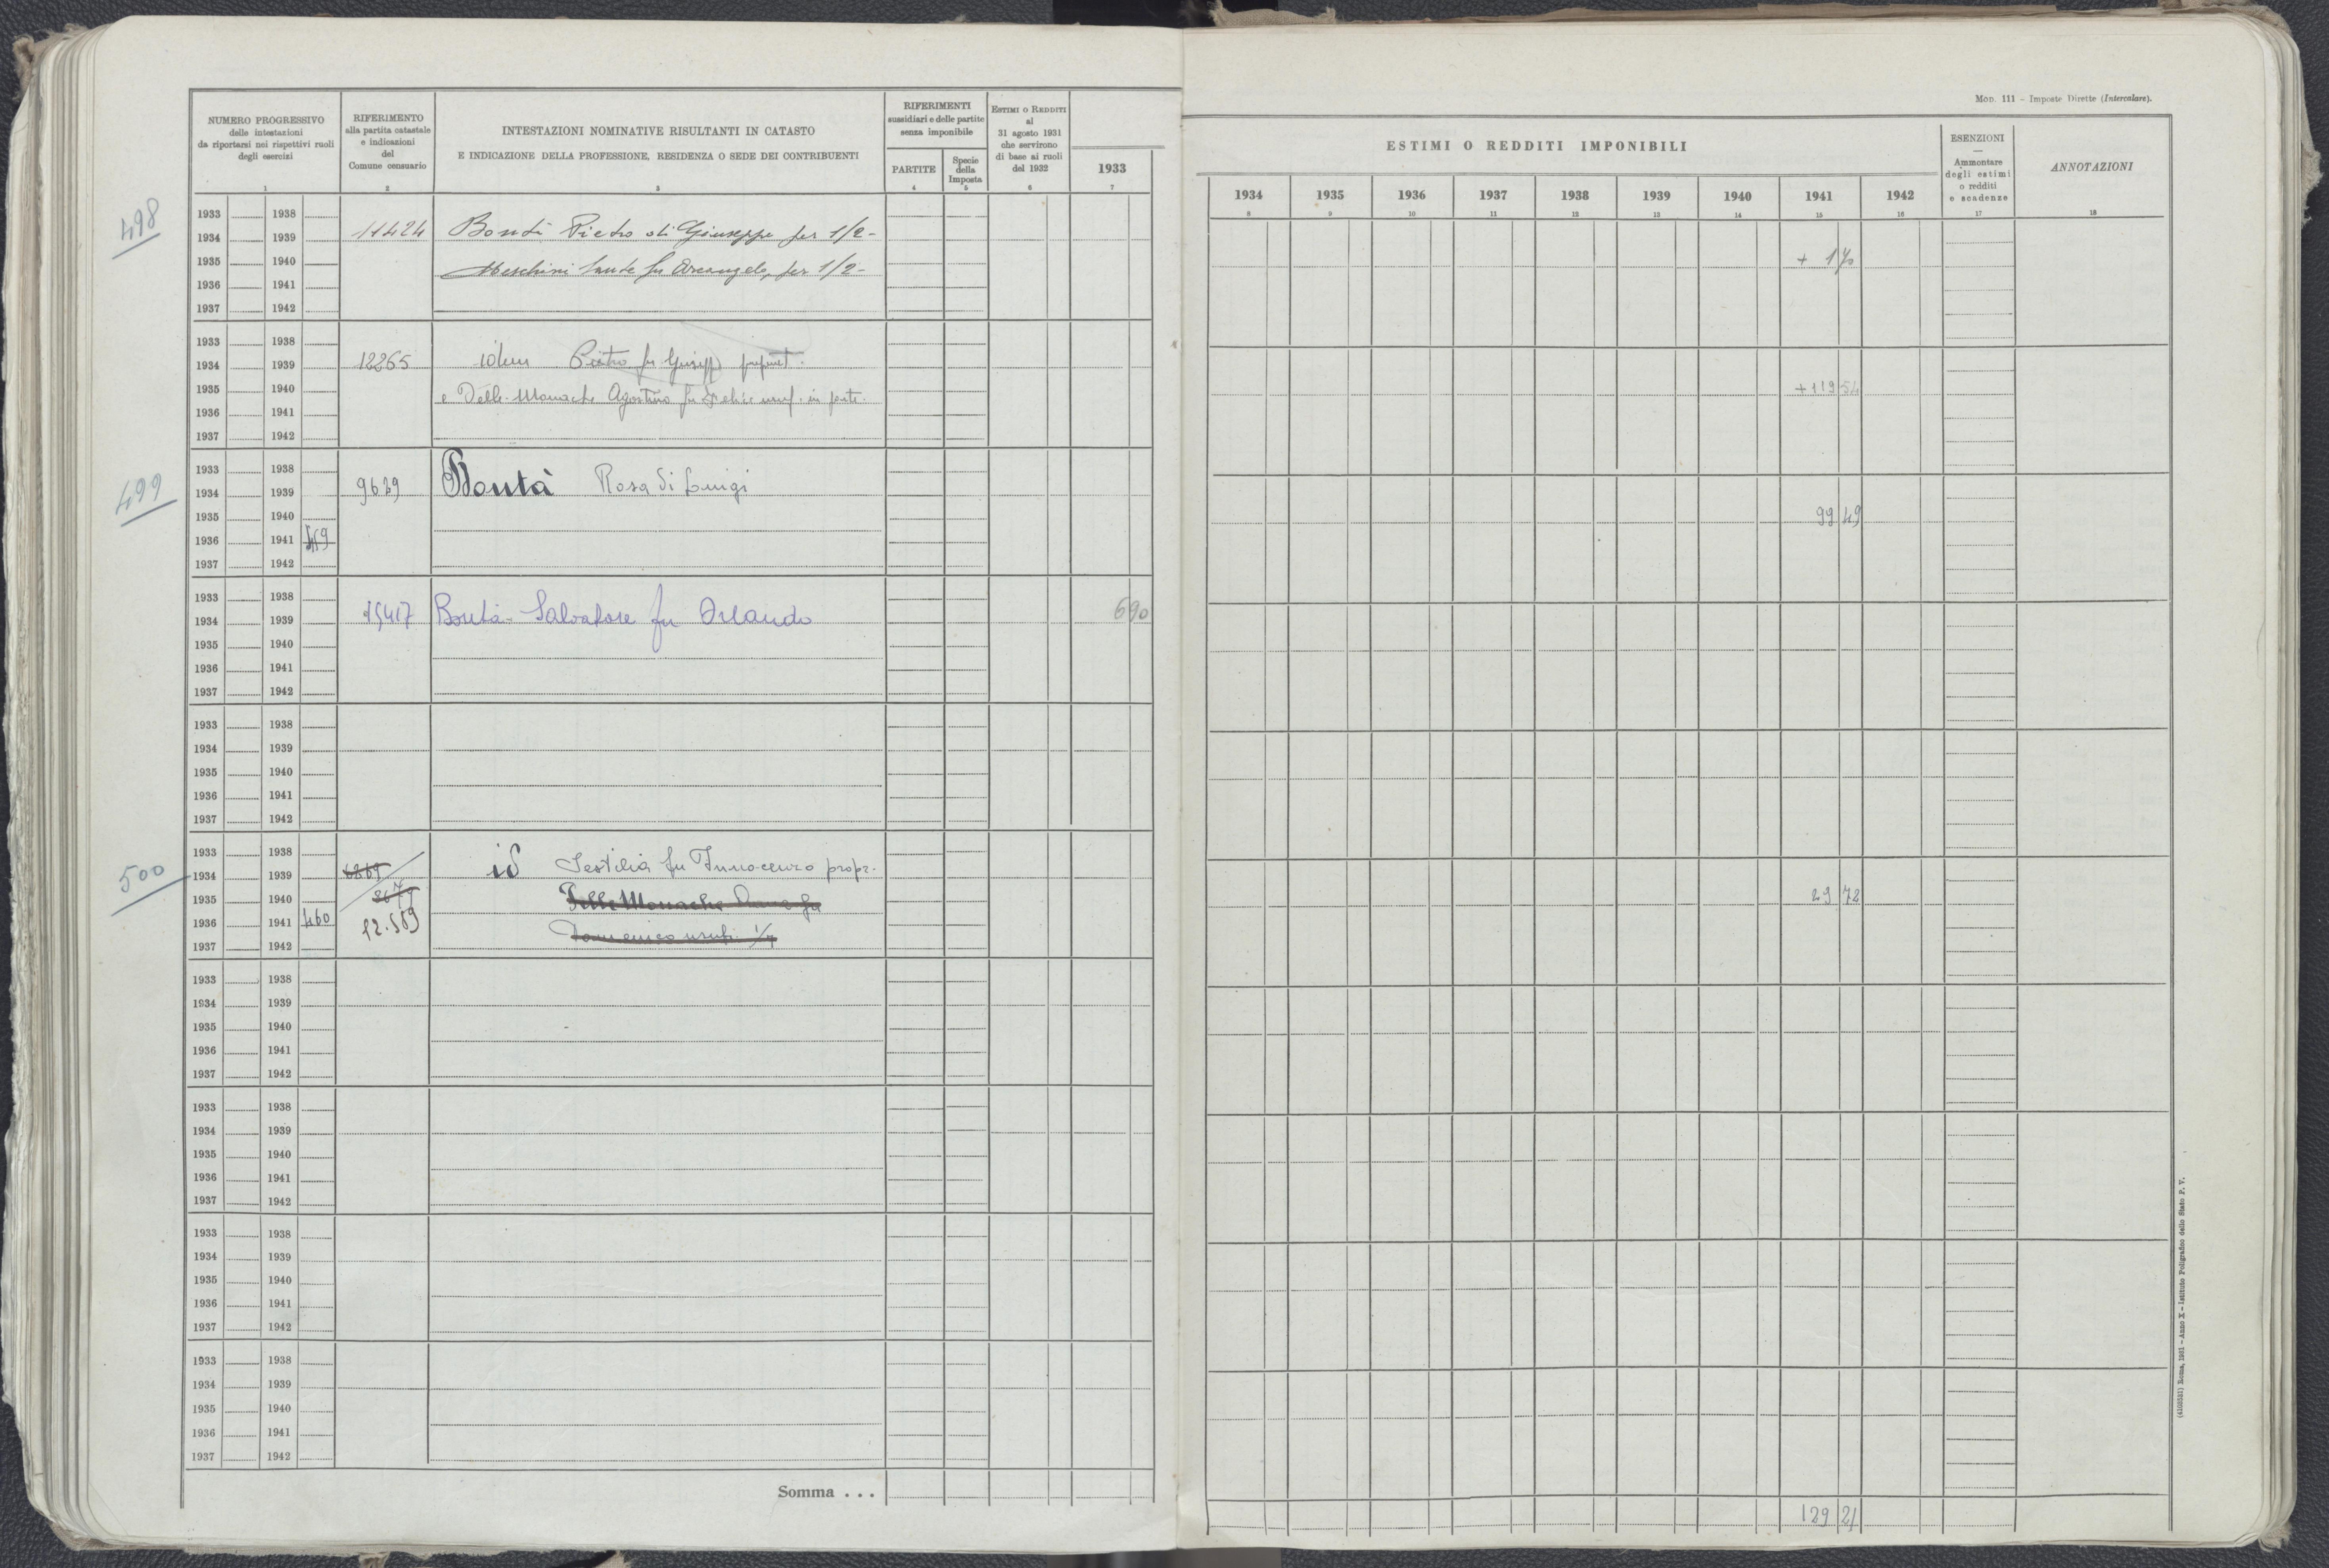 Mod. 111 - Imposte Dirette (Intercalare).
NUMERO PROGRESSIVO
delle intestazioni
da riportarsi nei rispettivi ruoli
degli esercizi
1
RIFERIMENTO
alla partita catastale
e indicazioni
del
Comune censuario
2
INTESTAZIONI NOMINATIVE RISULTANTI IN CATASTO
E INDICAZIONE DELLA PROFESSIONE, RESIDENZA O SEDE DEI CONTRIBUENTI
3
RIFERIMENTI
sussidiari e delle partite
senza imponibile
PARTITE
4
Specie
della
Imposta
5
ESTIMI O REDDITI
al
31 agosto 1931
che servirono
di base ai ruoli
del 1932
6
1933
7
ESTIMI O REDDITI IMPONIBILI
1934 1935 1936 1937 1938 1939 1940 1941 1942
8 9 10 11 12 13 14 15 16
ESENZIONI
—
Ammontare
degli estimi
o redditi
e scadenze
17
ANNOTAZIONI
18
498
1933 1938
1934 1939 11424 Bontà Pietro di Giuseppe per 1/2-
1935 1940 Meschini Sante fu Arcangelo, per 1/2- + 1 70
1936 1941
1937 1942
1933 1938
1934 1939 12265 idem Pietro fu Giusepp propriet.
1935 1940 e Delle Monache Agostino fu Felice usuf. in parte. +119 54
1936 1941
1937 1942
499
1933 1938
1934 1939 9639 Bontà Rosa di Luigi
1935 1940 99 49
1936 1941 459
1937 1942
1933 1938
1934 1939 15417 Bontà Salvatore fu Orlando 690
1935 1940
1936 1941
1937 1942
1933 1938
1934 1939
1935 1940
1936 1941
1937 1942
500
1933 1938 id Sestilia fu Innocenzo propr.
1934 1939
1935 1940 2679 Delle Monache fu 29 72
1936 1941 460 12.589
1937 1942 Domenico usuf. 1/4
1933 1938
1934 1939
1935 1940
1936 1941
1937 1942
1933 1938
1934 1939
1935 1940
1936 1941
1937 1942
1933 1938
1934 1939
1935 1940
1936 1941
1937 1942
1933 1938
1934 1939
1935 1940
1936 1941
1937 1942
Somma . . . 129 21
(4103351) Roma, 1931 - Anno X - Istituto Poligrafico dello Stato P. V.